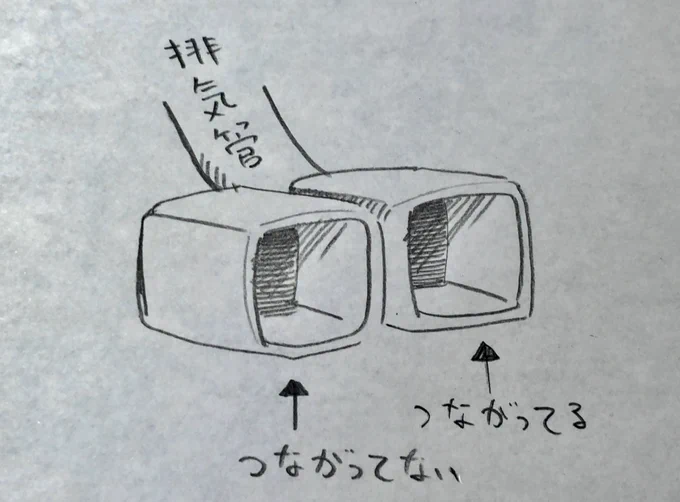 排気管
つながってる
つながってない